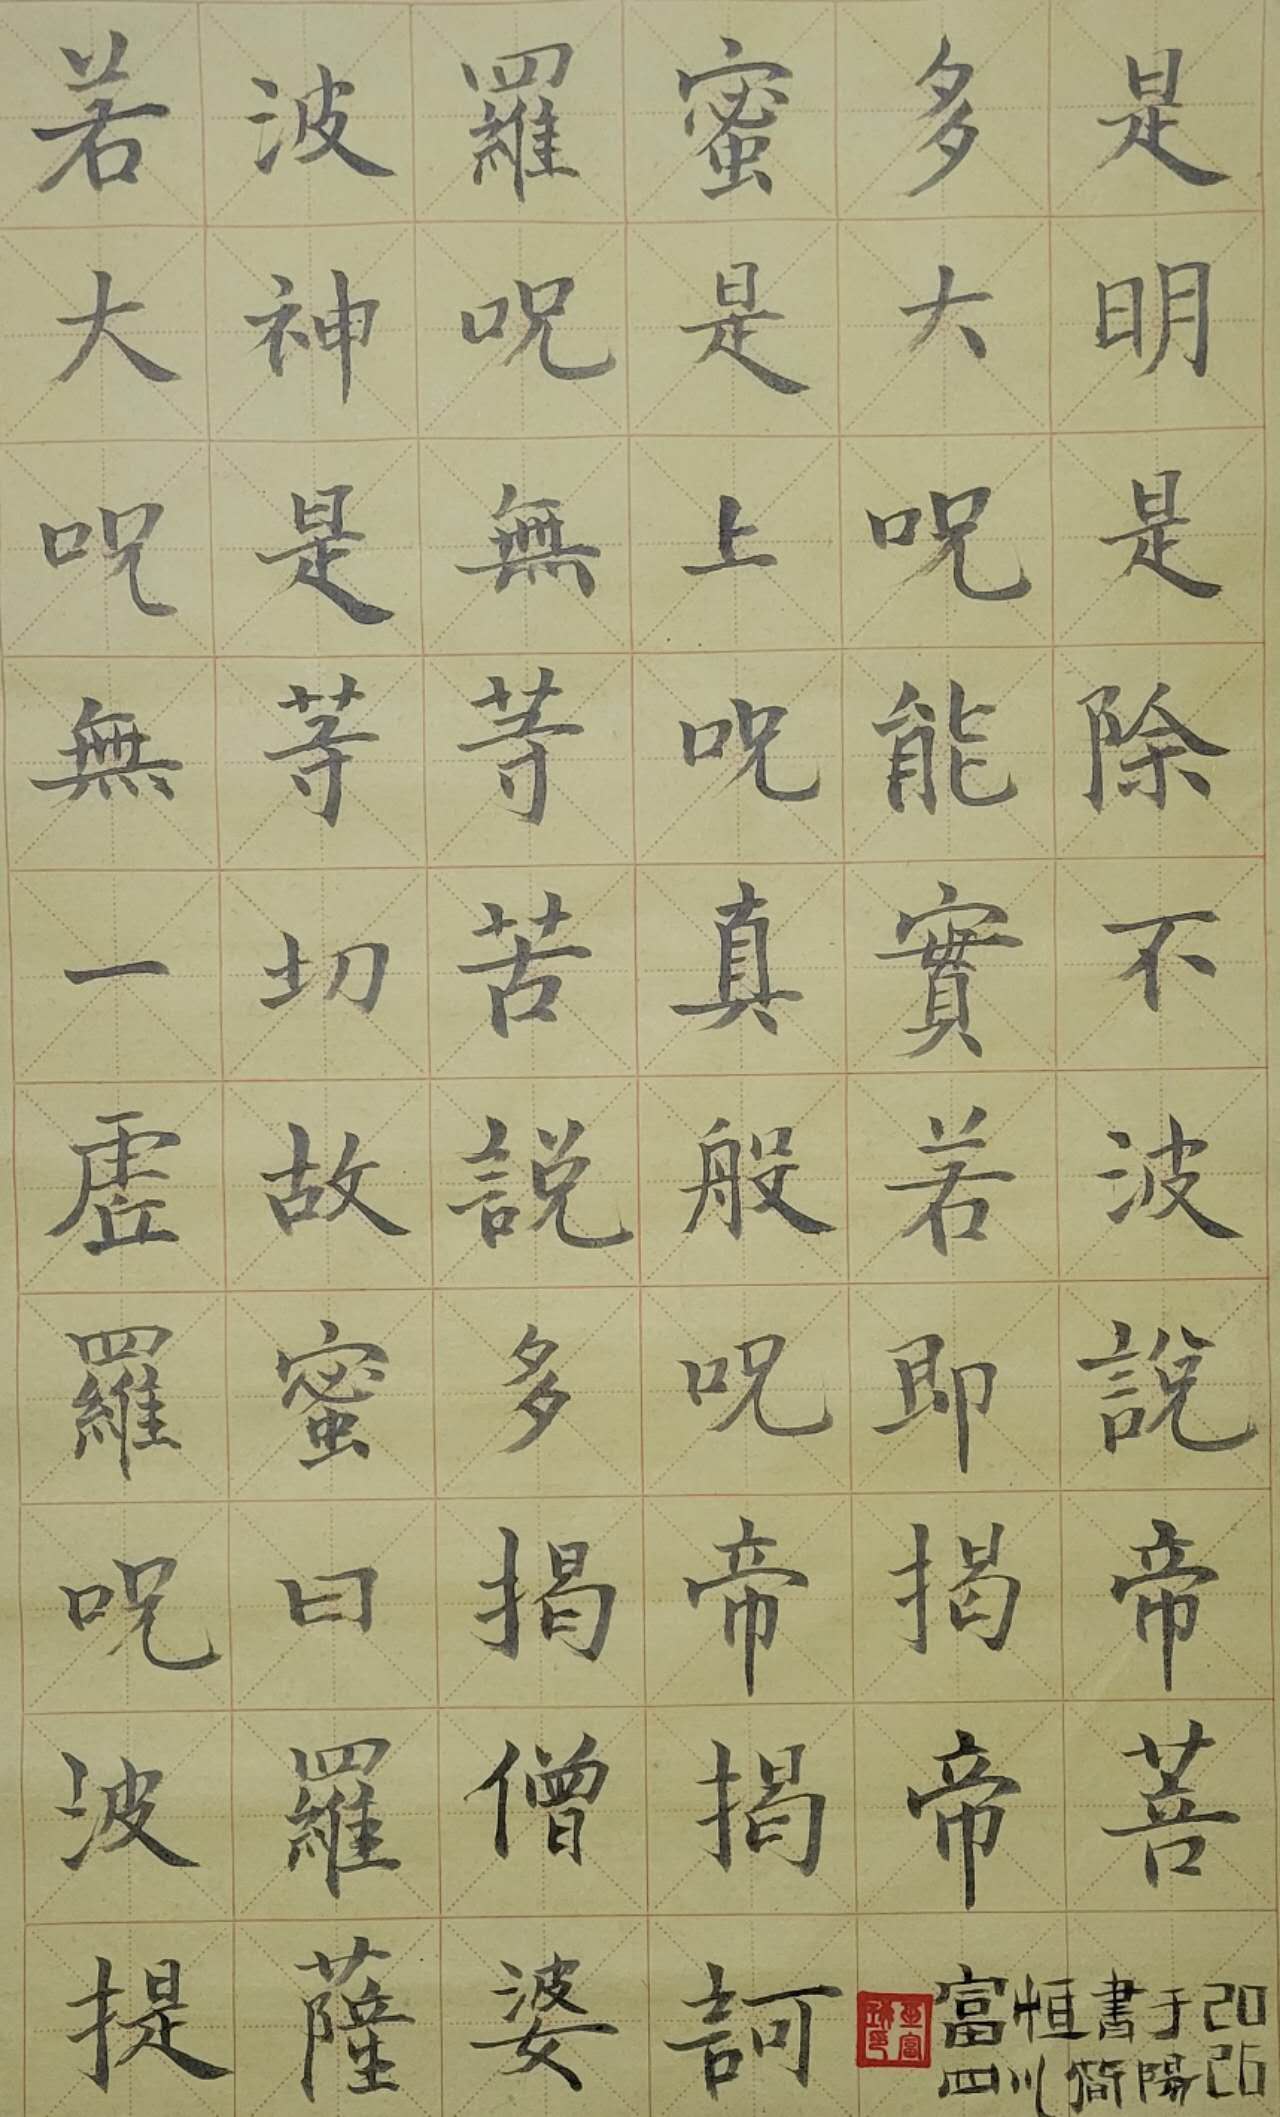 若波羅蜜多是
大神呪是大明
呪是無上呪是
無等等呪能除
一切苦真實不
虛故説般若波
羅蜜多呪即說
呪曰揭帝揭帝
波羅僧揭帝菩
提薩婆訶
富恒書于20
四川簡陽26